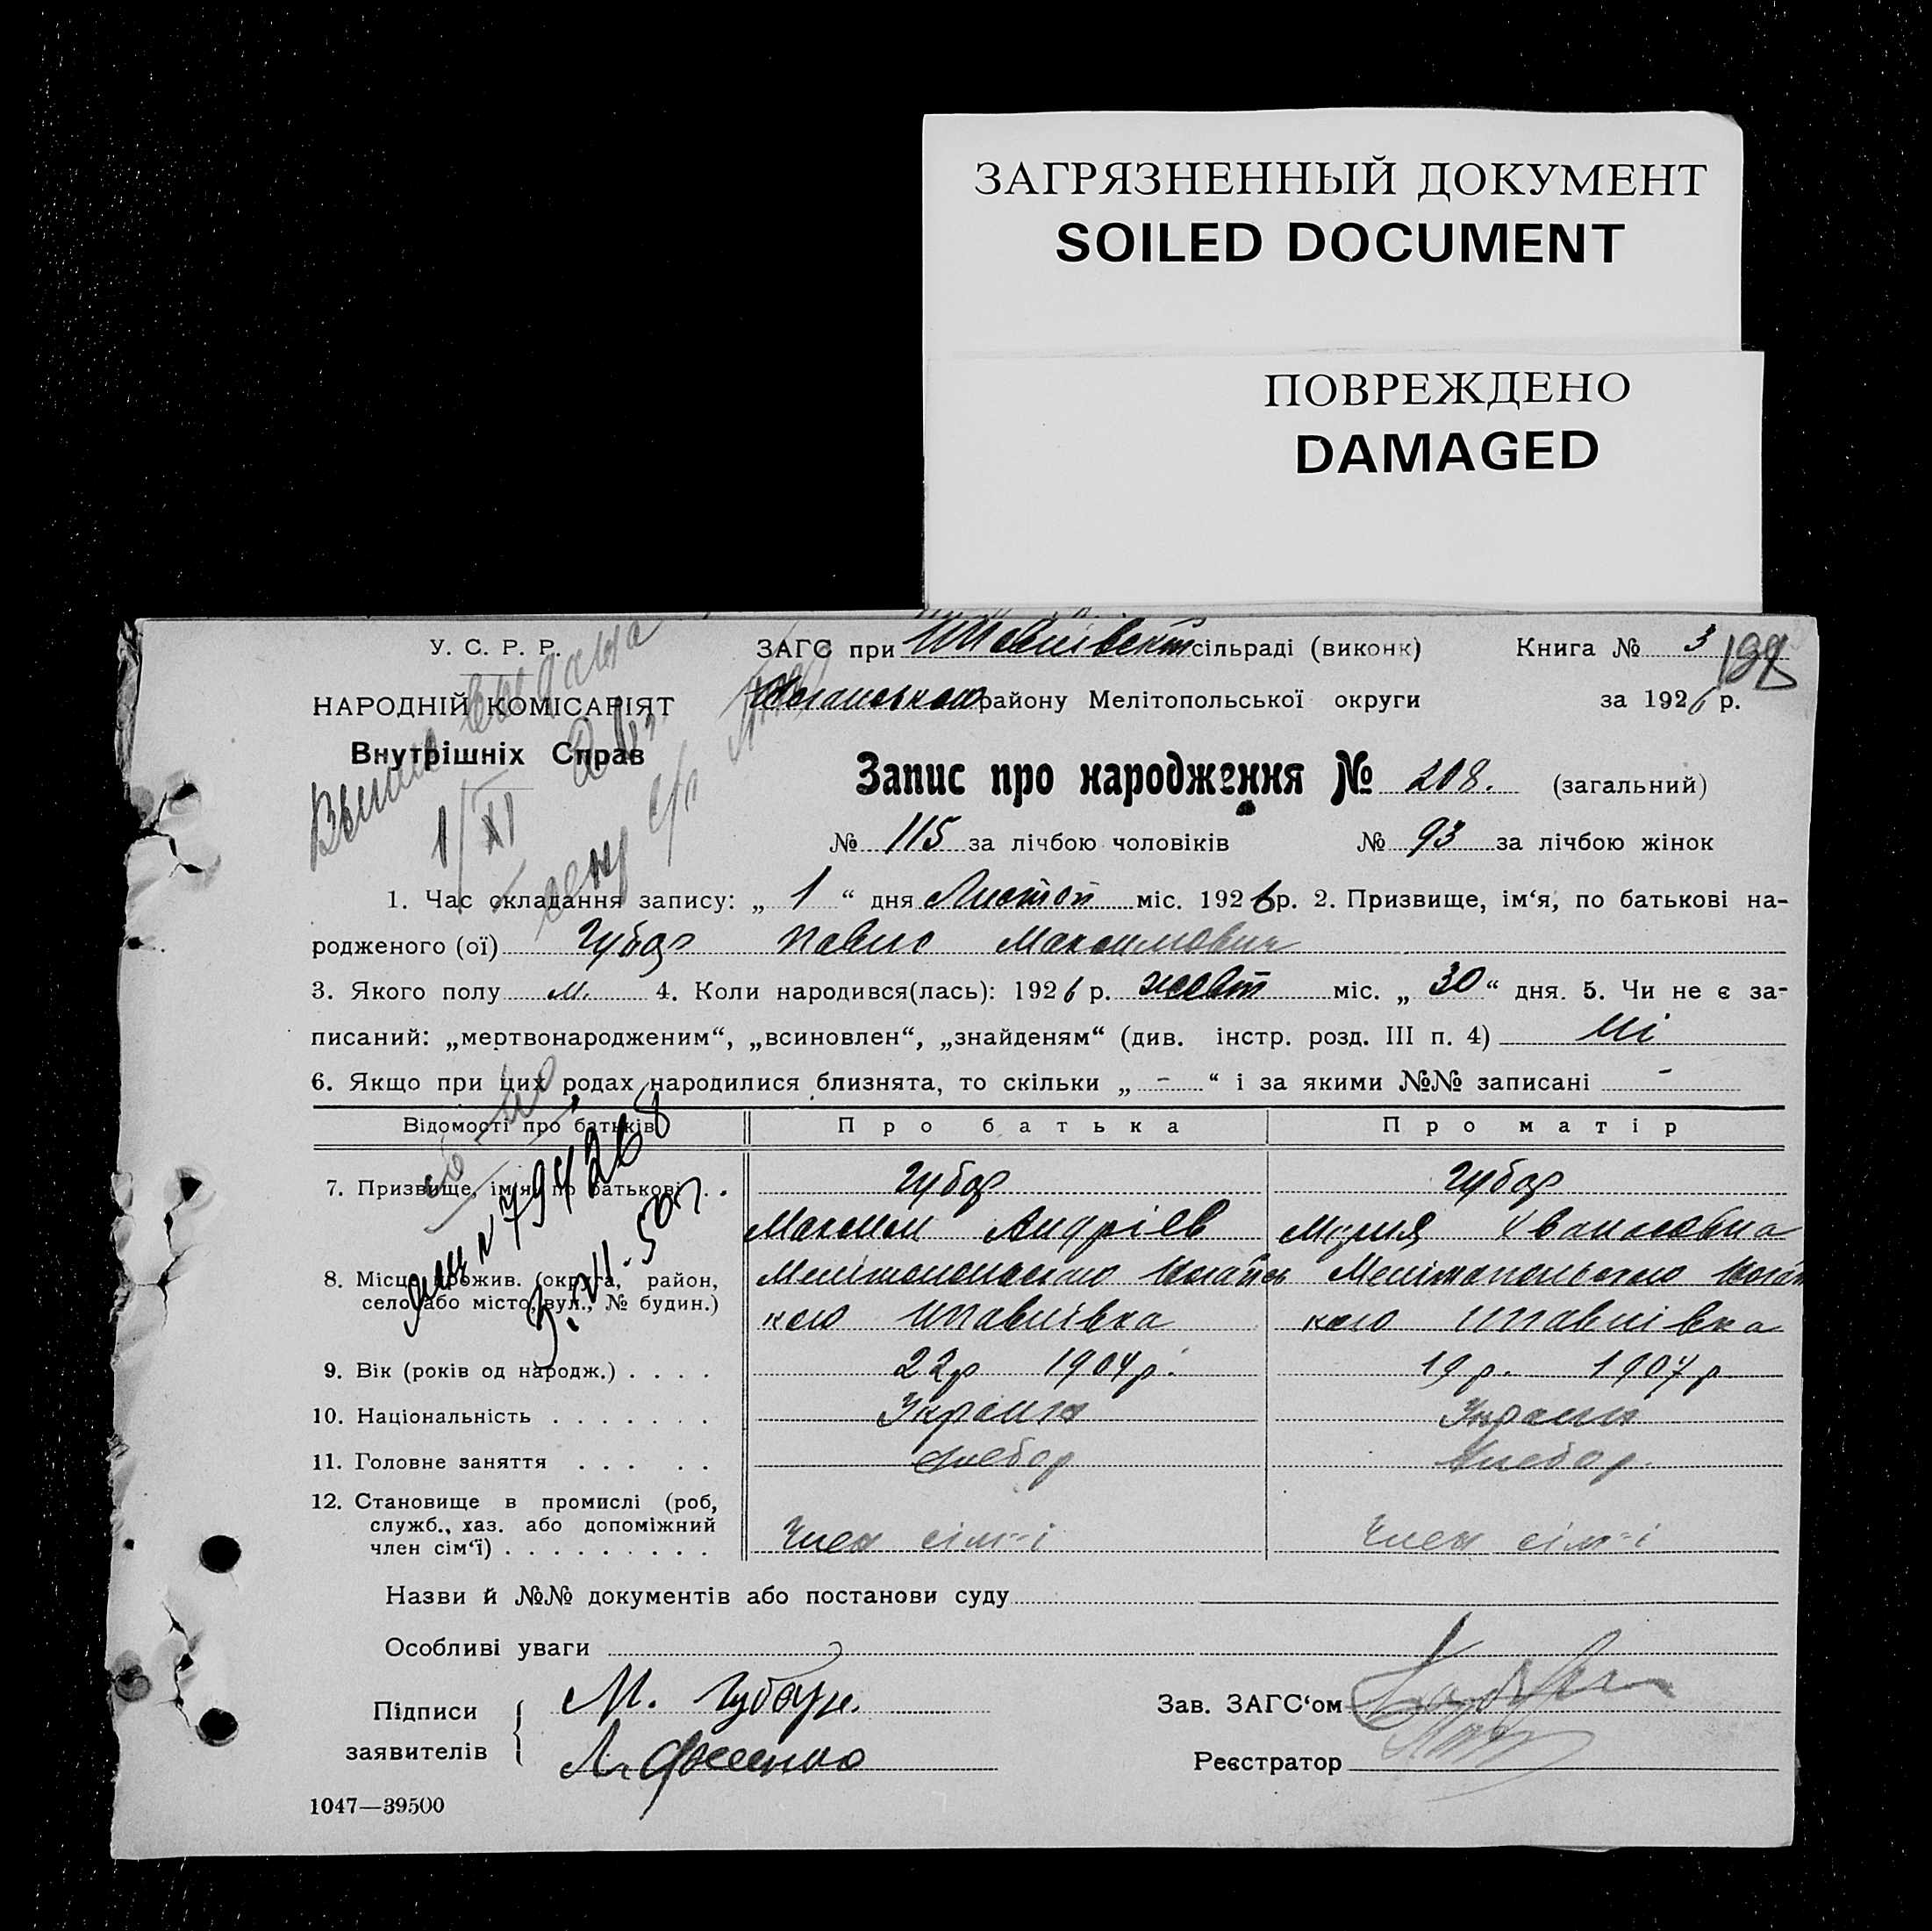 ЗАГРЯЗНЕННЫЙ ДОКУМЕНТ
SOILED DOCUMENT
ПОВРЕЖДЕНО
DAMAGED
У. С. Р. Р.
НАРОДНІЙ КОМІСАРІЯТ
Внутрішніх Справ
ЗАГС при сільраді (виконк) Книга № 3
району Мелітопольської округи за 1926 р.
Запис про народження № 208. (загальний)
№ 115 за лічбою чоловіків № 93 за лічбою жінок
1. Час складання запису: „ 1 “ дня Листоп міс. 1926 р. 2. Призвище, ім‘я, по батькові на-
родженого (ої) Губар Павло Максимович
3. Якого полу м. 4. Коли народився(лась): 1926 р. жовт міс. „ 30 “ дня. 5. Чи не є за-
писаний: „мертвонародженим“, „всиновлен“, „знайденям“ (див. інстр. розд. III п. 4) ні
6. Якщо при цих родах народилися близнята, то скільки „ - “ і за якими №№ записані -
Відомості про батьків Про батька Про матір
7. Призвище, ім‘я, по батькові . . Губар Губар
Максим Андріев Мария Ивановна
8. Місце прожив. (округа, район,
село або місто, вул., № будин.)
кого Шпавлівка кого Шпавлівка
9. Вік (років од народж.) . . . . 22 р 1904 р. 19 р. 1907 р
10. Національність . . . . . . . Украин Украин
11. Головне заняття . . . . . Хлебор Хлебор.
12. Становище в промислі (роб,
служб., хаз. або допоміжний
член сім‘ї) . . . . . . . . . Член сім"і Член сім"і
Назви й №№ документів або постанови суду
Особливі уваги
Підписи М. Губарь. Зав. ЗАГС‘ом
заявителів Реєстратор
1047—39500